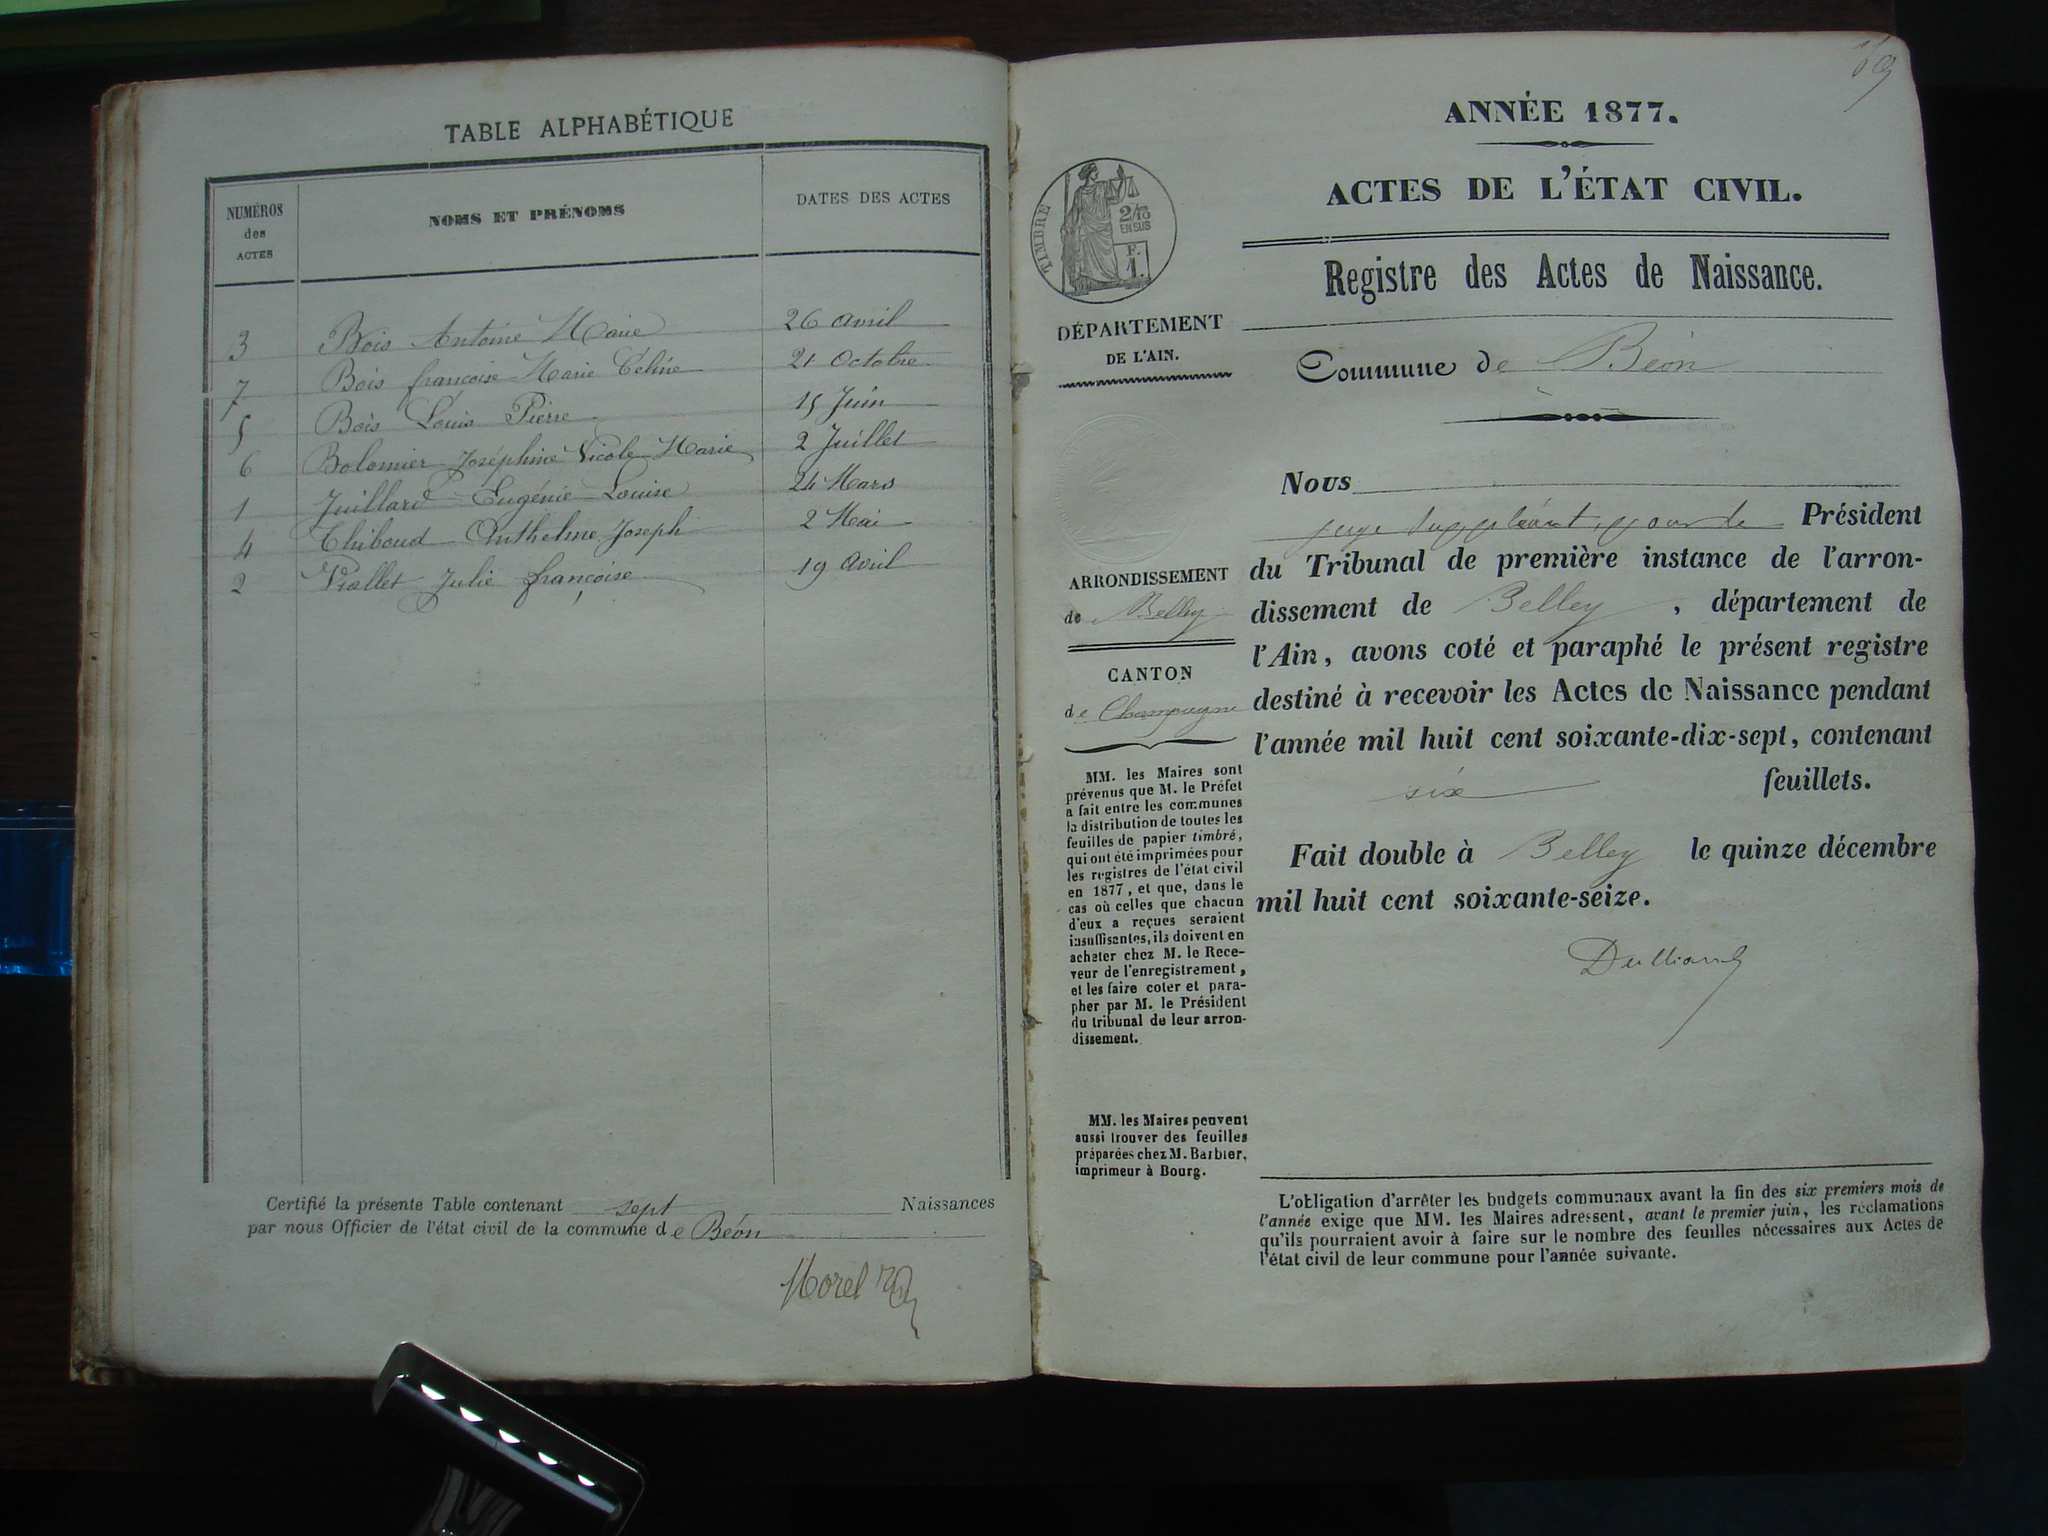 TABLE ALPHABÉTIQUE
NUMÉROS des ACTES
NOMS ET PRÉNOMS
DATES DES ACTES
3 Bois Antoine Marie 26 avril
7 Bois françoise Marie Céline 21 Octobre
5 Bois Louis Pierre 15 Juin
6 Bolomier Joséphine Nicole Marie 2 Juillet
1 Juillard Eugénie Louise 24 Mars
4 Thiboud Anthelme Joseph 2 Mai
2 Viallet Julie françoise 19 avril
Certifié la présente Table contenant sept Naissances
par nous Officier de l'état civil de la commune de Béon
Morel
69
ANNÉE 1877.
ACTES DE L'ÉTAT CIVIL.
Registre des Actes de Naissance.
TIMBRE
2/10
EN SUS
F.
1.
DÉPARTEMENT
DE L'AIN.
Commune de Béon
ARRONDISSEMENT
de Belley
CANTON
de Champagne
MM. les Maires sont
prévenus que M. le Préfet
a fait entre les communes
la distribution de toutes les
feuilles de papier timbré,
qui ont été imprimées pour
les registres de l'état civil
en 1877, et que, dans le
cas où celles que chacun
d'eux a reçues seraient
insuffisantes, ils doivent en
acheter chez M. le Rece-
veur de l'enregistrement,
et les faire coter et para-
pher par M. le Président
du tribunal de leur arron-
dissement.
MM. les Maires peuvent
aussi trouver des feuilles
préparées chez M. Barbier,
imprimeur à Bourg.
Nous
juge suppléant, pour le Président
du Tribunal de première instance de l'arron-
dissement de Belley, département de
l'Ain, avons coté et paraphé le présent registre
destiné à recevoir les Actes de Naissance pendant
l'année mil huit cent soixante-dix-sept, contenant
six feuillets.
Fait double à Belley le quinze décembre
mil huit cent soixante-seize.
L'obligation d'arrêter les budgets communaux avant la fin des six premiers mois de
l'année exige que MM. les Maires adressent, avant le premier juin, les réclamations
qu'ils pourraient avoir à faire sur le nombre des feuilles nécessaires aux Actes de
l'état civil de leur commune pour l'année suivante.